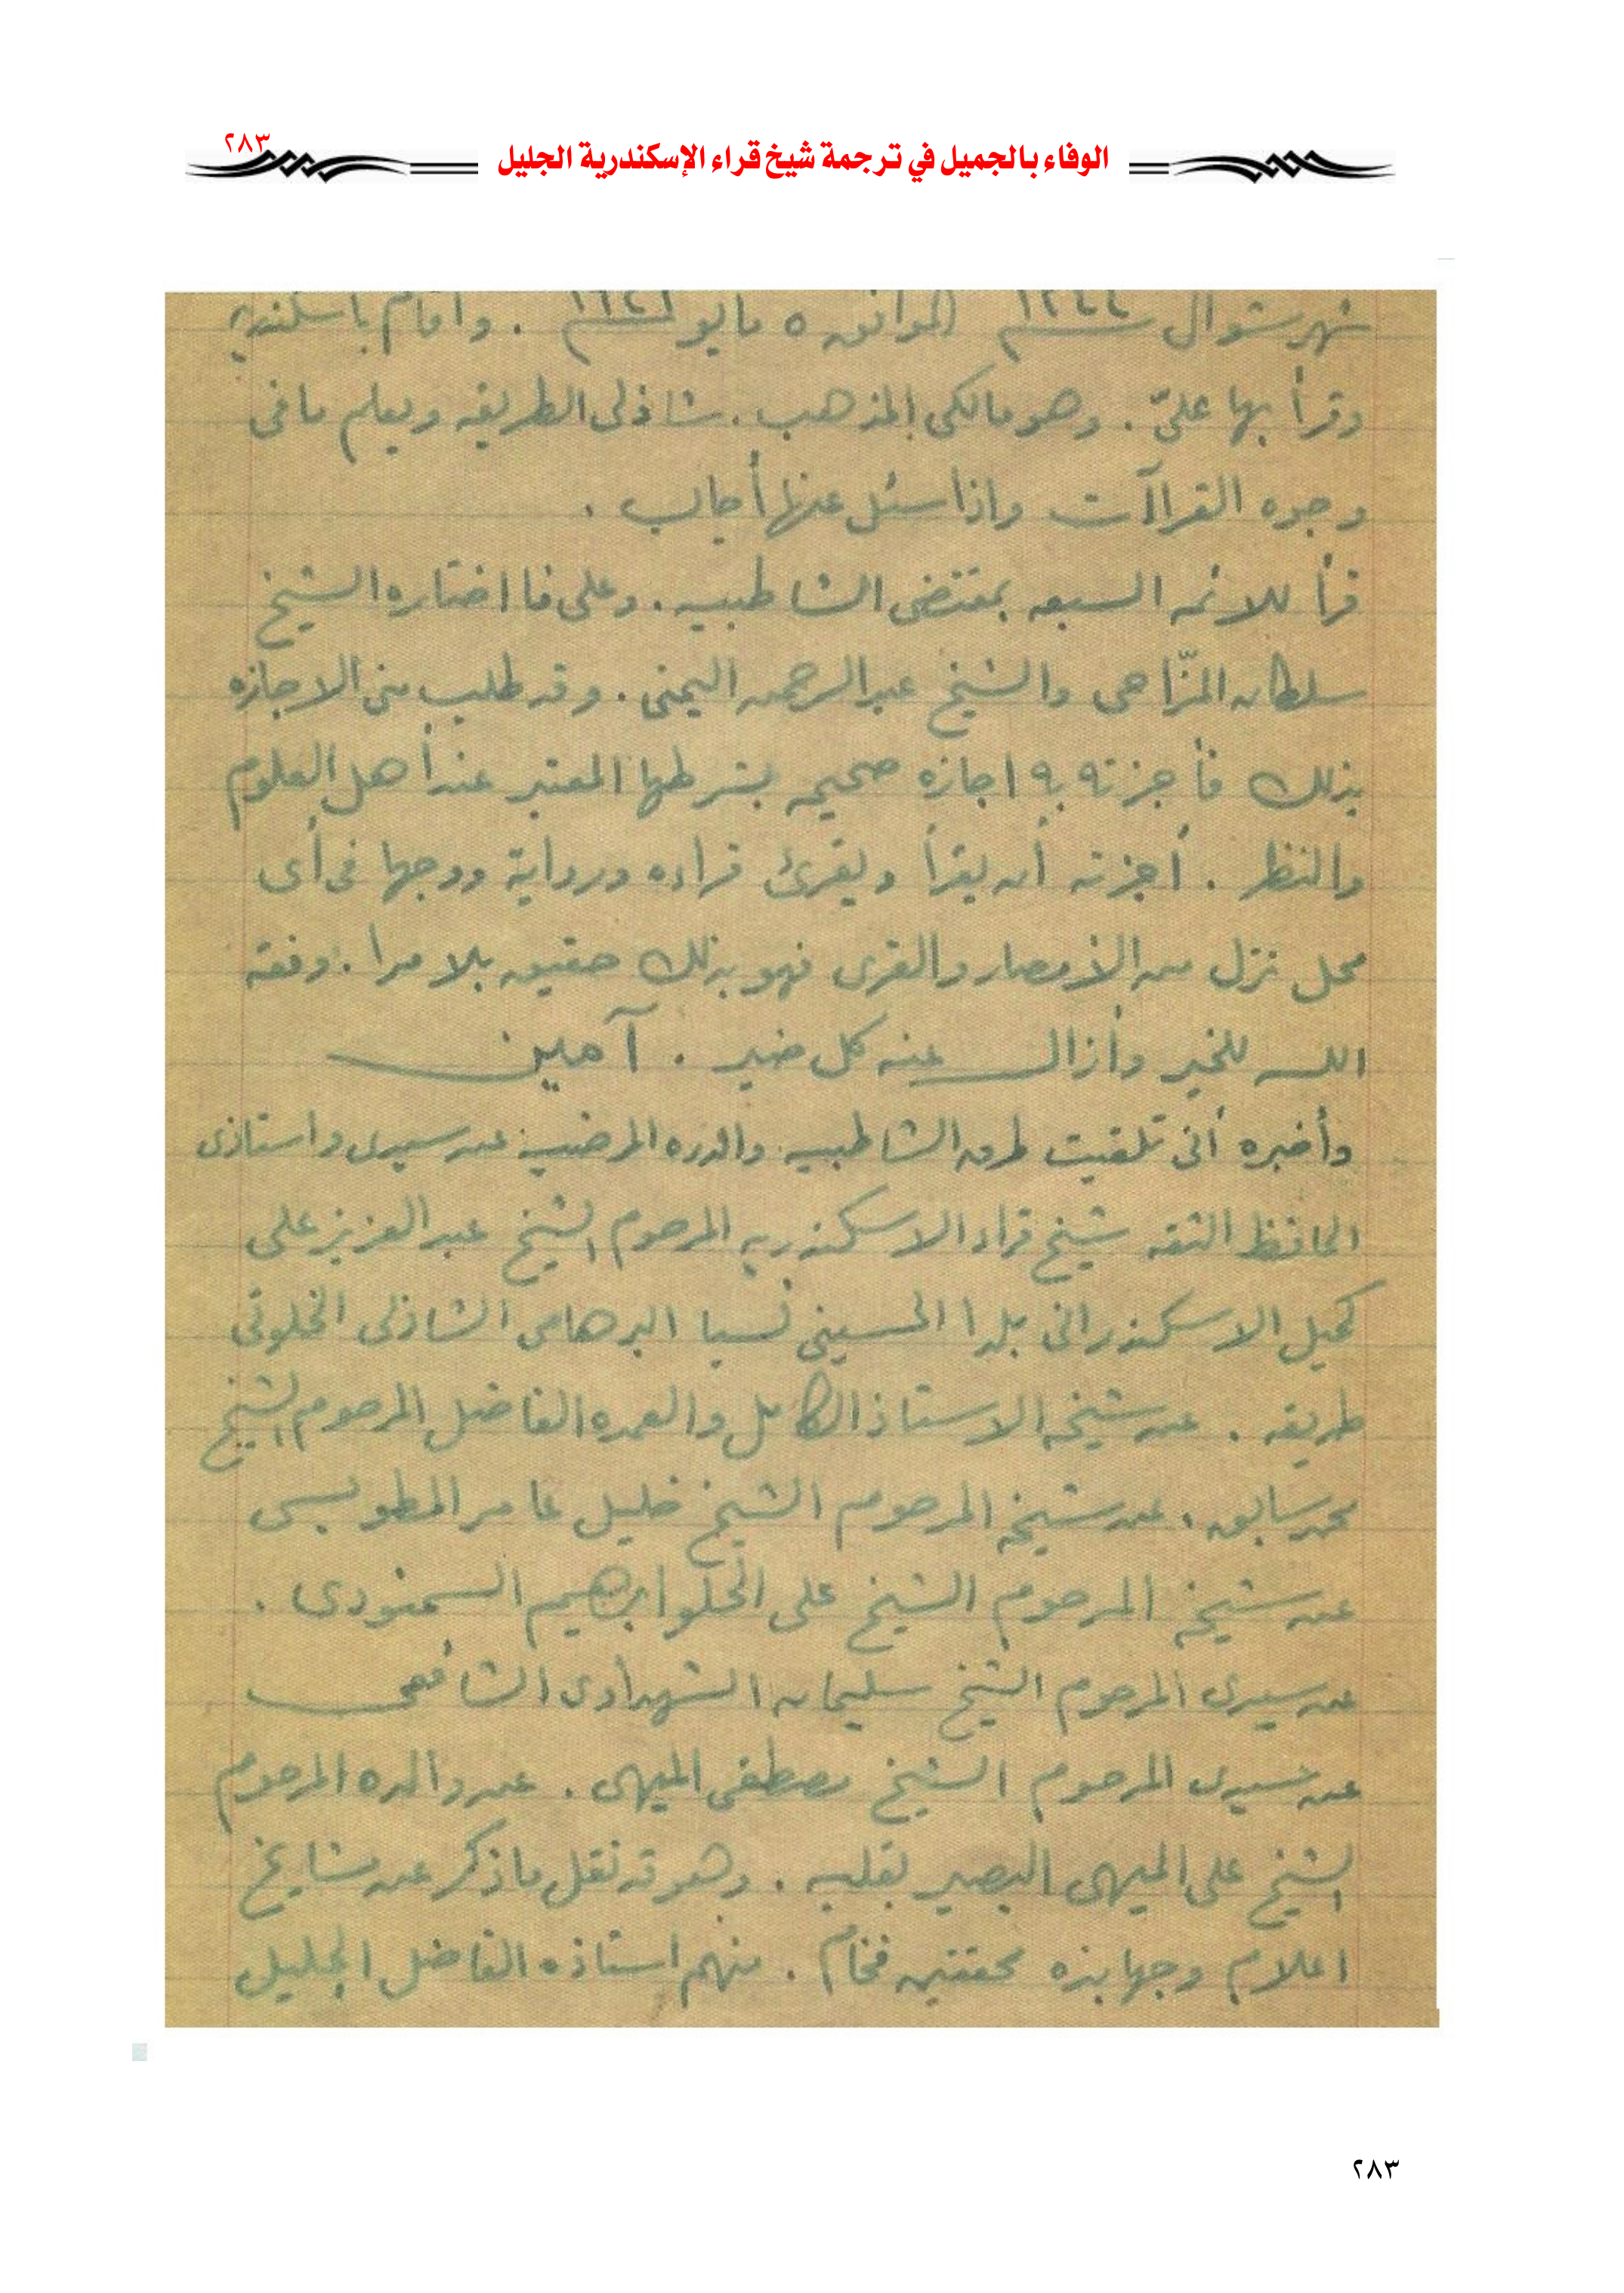 الوفاء بالجميل في ترجمة شيخ قراء الإسكندرية الجليل
٢٨٣
شهر شوال سنة ١٣٤٤ الموافق ٥ مايو سنة . وأقام باسكندرية
وقرأ بها علىّ . وهو مالكى المذهب . شاذلى الطريقه ويعلم ما فى
وجوه القراآت واذا سئل عنها أجاب .
قرأ للائمه السبعه بمقتضى الشاطبيه . وعلى ما اختاره الشيخ
سلطان المزّاحى والشيخ عبد الرحمن اليمنى . وقد طلب منى الاجازه
بذلك فأجزته به اجازه صحيحه بشرطها المعتبر عند أهل العلوم
والنظر . أجزته أن يقرأ ويقرئ قراءه ورواية ووجها فى أى
محل نزل من الأمصار والقرى فهو بذلك حقيق بلا مرا . وفقه
الله للخير وأزال عنه كل ضير . آمين
وأخبره أنى تلقيت طرق الشاطبيه والدره المرضيه عن سيدى واستاذى
الحافظ الثقه شيخ قراء الاسكندريه المرحوم الشيخ عبد العزيز على
كحيل الاسكندرانى بلدا الحسينى نسبا البرهامى الشاذلى الخلوتى
طريقه . عن شيخه الاستاذ الكامل والعمده الفاضل المرحوم الشيخ
محمد سابق . عن شيخه المرحوم الشيخ خليل عامر المطوبسى
عن شيخه المرحوم الشيخ على الحلو ابرهيم السمنودى .
عن سيدى المرحوم الشيخ سليمان الشهداوى الشافعى
عن سيدى المرحوم الشيخ مصطفى الميهى . عن والده المرحوم
الشيخ على الميهى البصير بقلبه . وهو قد نقل ما ذكر عن مشايخ
اعلام وجهابذه محققين فخام . منهم استاذه الفاضل الجليل
٢٨٣